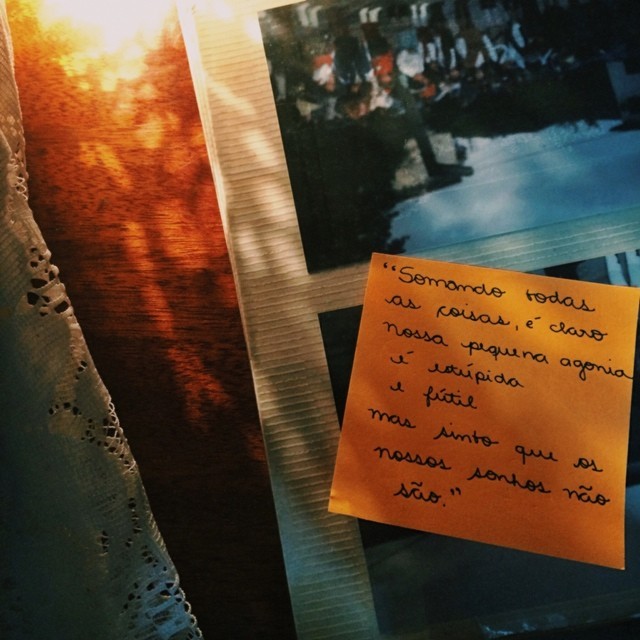 "Somando todas
as coisas, é claro
nossa pequena agonia
é estúpida
e fútil
mas sinto que os
nossos sonhos não
são."